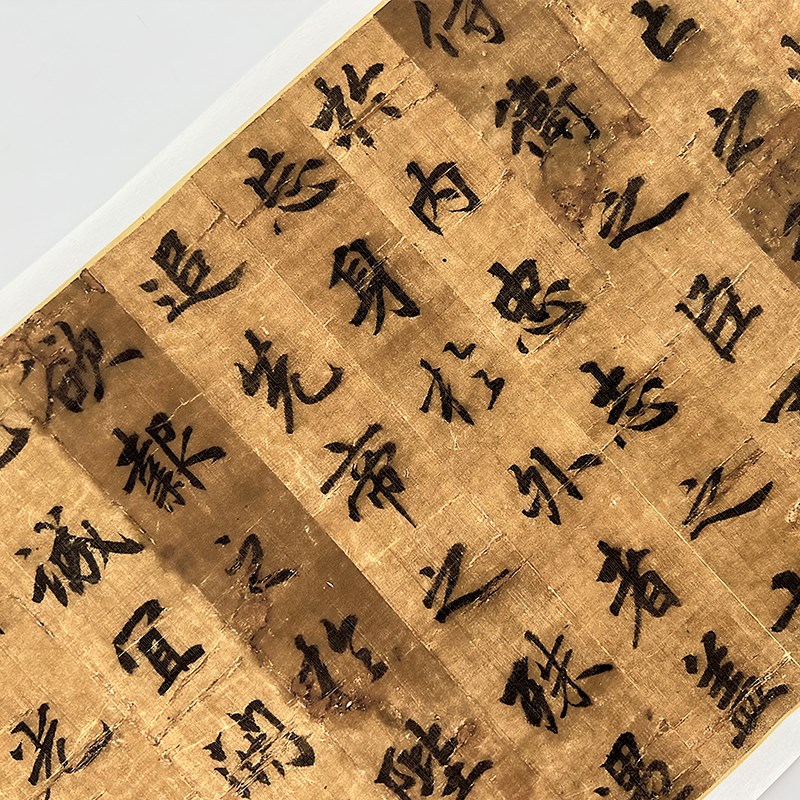 亡之
侍衛之臣
於內忠志之
忘身於外者蓋
追先帝之殊遇
欲報之於陛
誠宜開
光